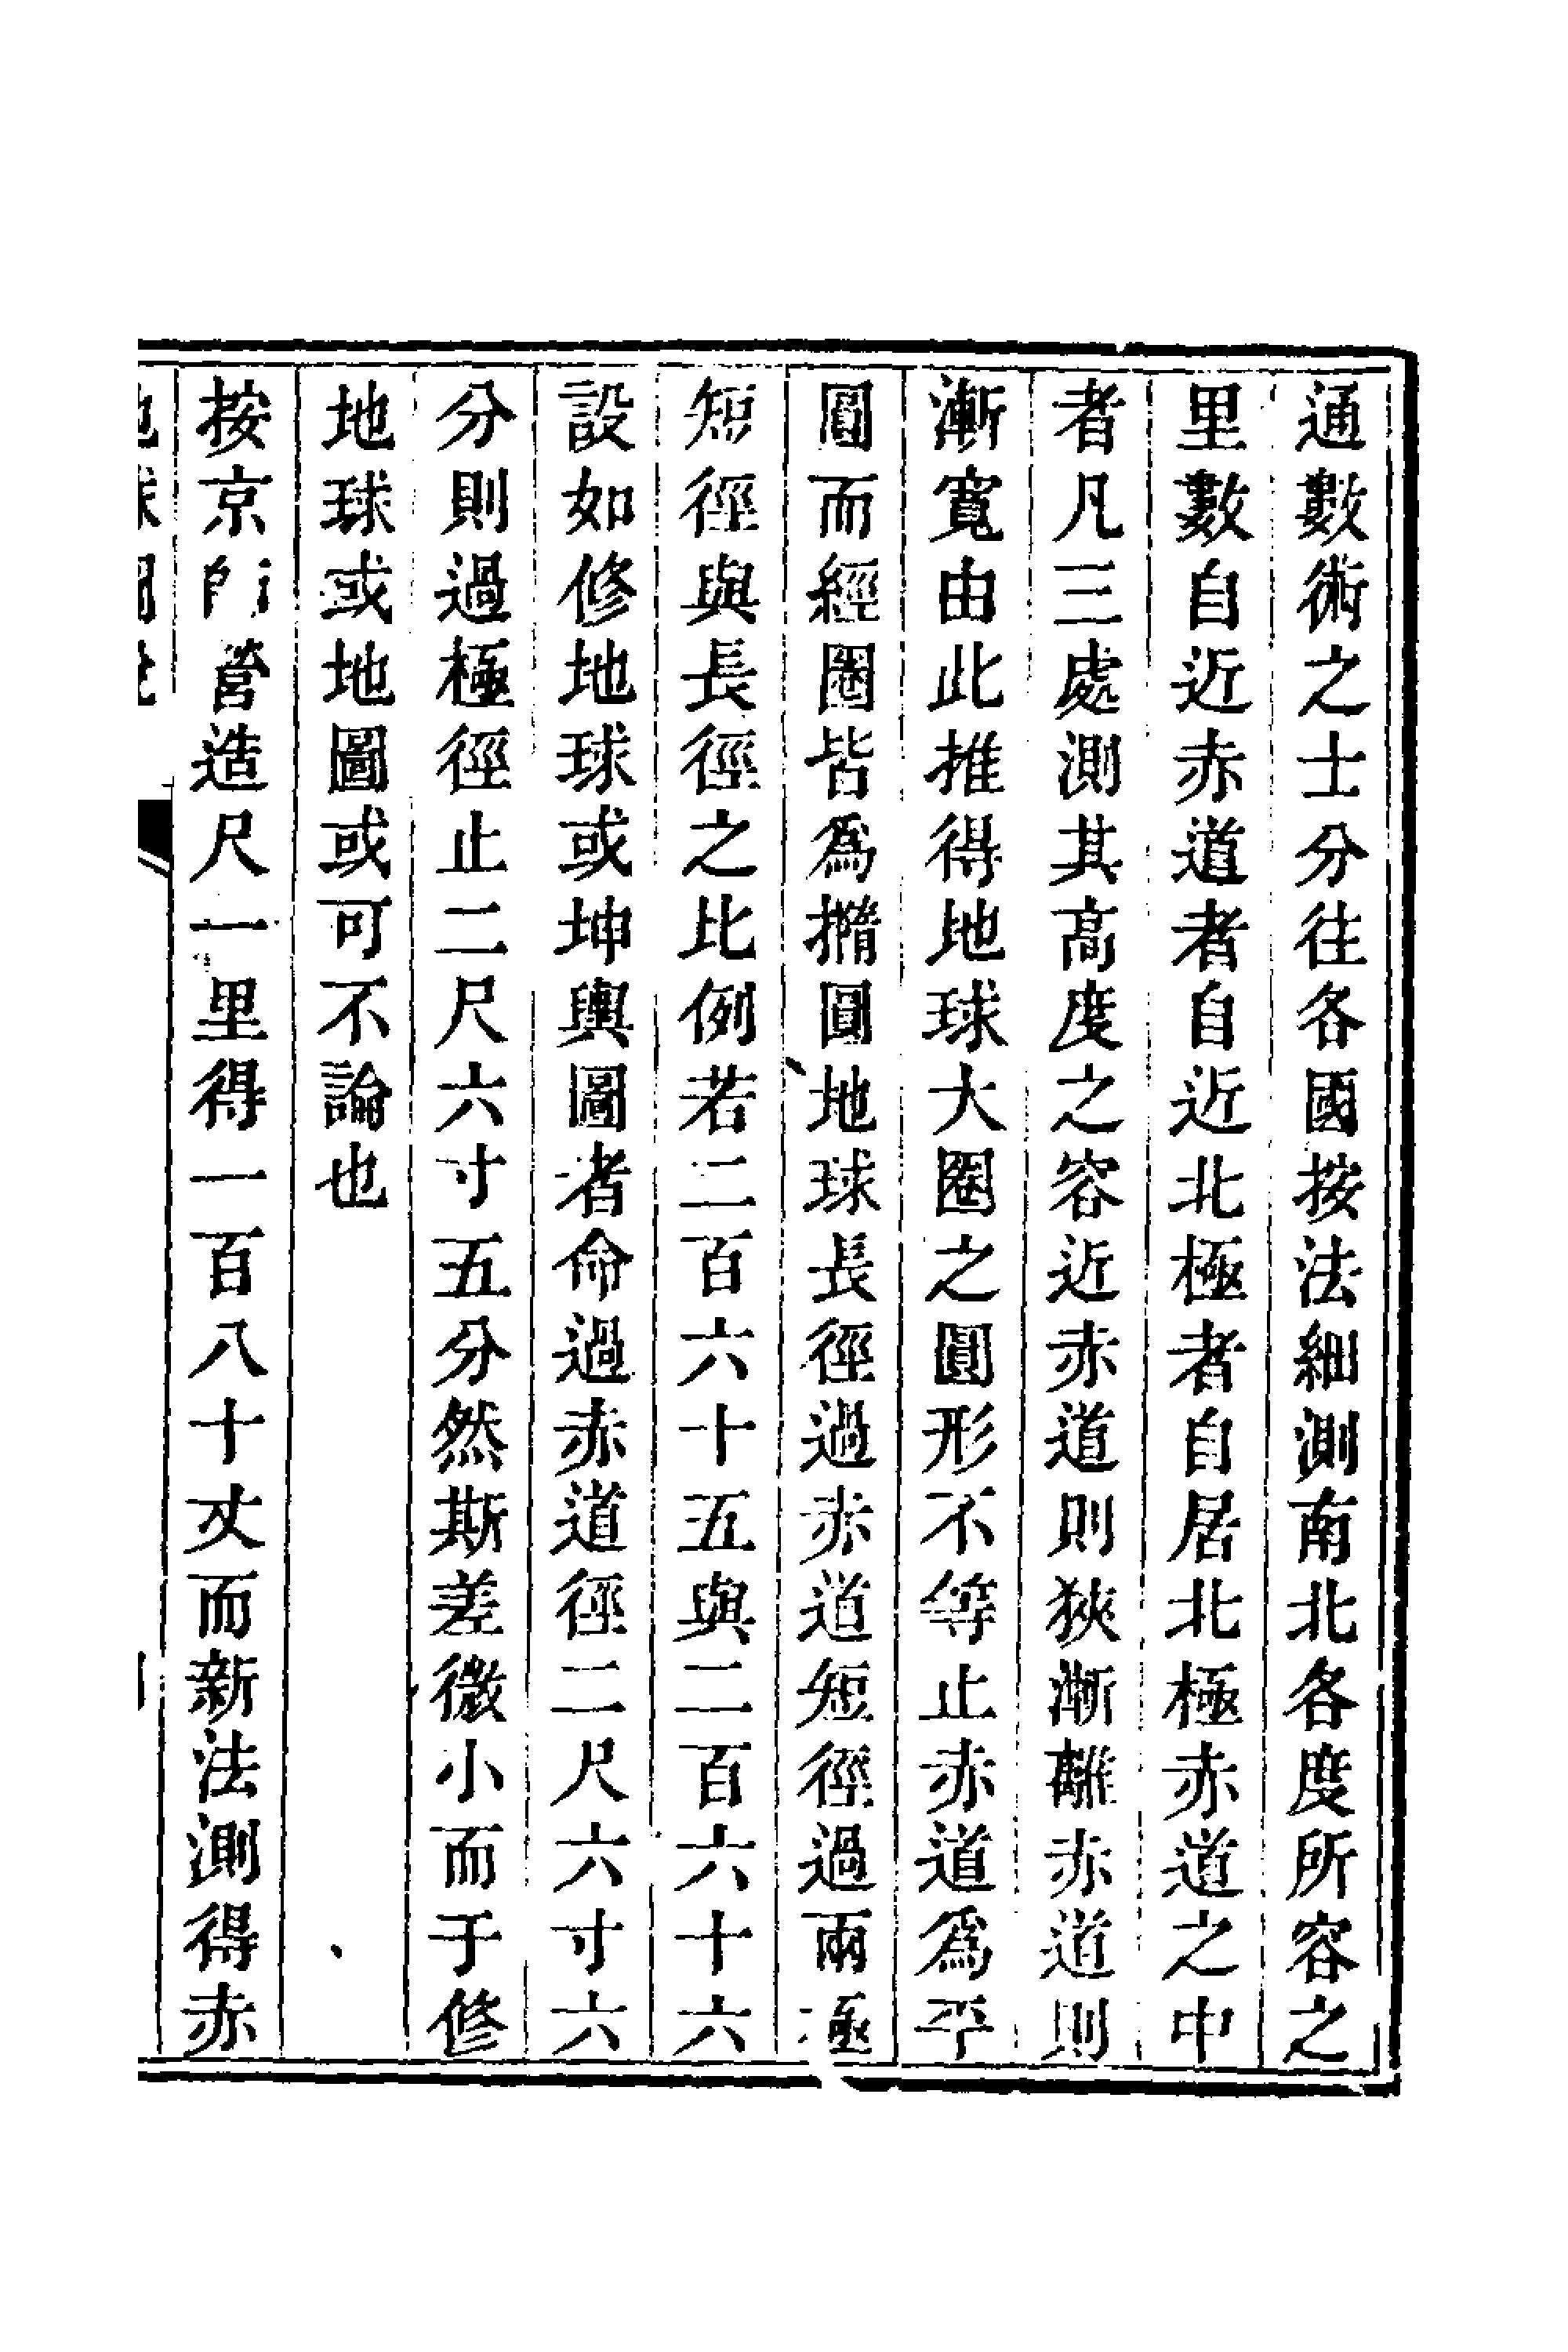 通數術之士分往各國按法細測南北各度所容之
里數自近赤道者自近北極者自居北極赤道之中
者凡三處測其高度之容近赤道則狹漸離赤道則
漸寬由此推得地球大圈之圓形不等止赤道為平
圓而經圈皆為撱圓地球長徑過赤道短徑過兩極
短徑與長徑之比例若二百六十五與二百六十六
設如修地球或坤輿圖者命過赤道徑二尺六寸六
分則過極徑止二尺六寸五分然斯差微小而于修
地球或地圖或可不論也
按京師營造尺一里得一百八十丈而新法測得赤